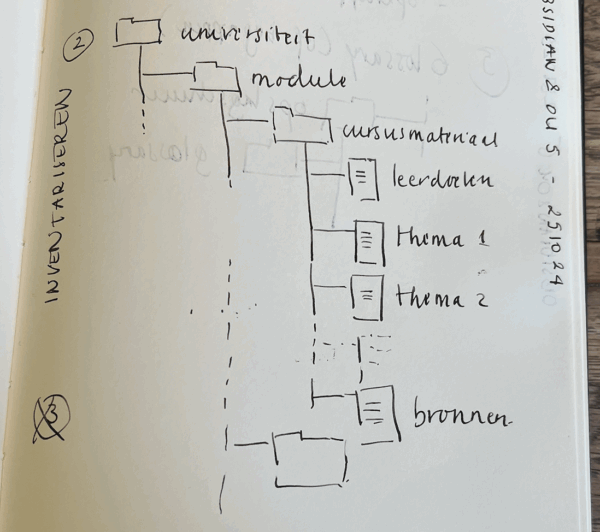 2
universiteit
module
cursusmateriaal
leerdoelen
thema 1
thema 2
bronnen
INVENTARISEREN
3
OBSIDIAN & OU 5 - 251024